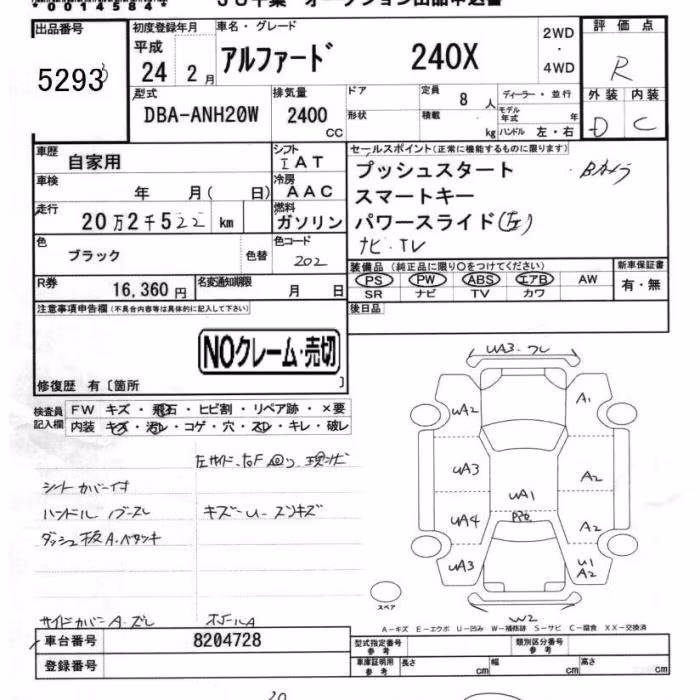 *00145844*
出品番号
5293
初度登録年月
平成
24 2月
車名・グレード
アルファード 240X
2WD
・
4WD
評価点
R
外装 内装
D C
型式
DBA-ANH20W
排気量
2400
CC
ドア
形状
定員
8人
積載
kg
ディーラー・並行
モデル年式 年
ハンドル 左・右
車歴
自家用
シフト
IAT
車検
年 月( 日)
冷房
AAC
走行
20万2千522 km
燃料
ガソリン
色
ブラック
色替
色コード
202
R券
16,360円
名変通知期限
月 日
セールスポイント(正常に機能するものに限ります)
プッシュスタート
・Bカメラ
スマートキー
パワースライド(左)
ナビ・TV
装備品(純正品に限り○をつけてください)
新車保証書
PS PW ABS エアB AW
SR ナビ TV カワ
有・無
後日品
注意事項申告欄(不具合内容等は具体的に記入して下さい)
NOクレーム・売切
修復歴 有〔箇所 〕
検査員記入欄
FW キズ・飛石・ヒビ割・リペア跡・×要
内装 キズ・汚レ・コゲ・穴・スレ・キレ・破レ
シートカバー付
ハンドル
キズ-U-
ダッシュ板A・ベタツキ
サイドカバーA・ズレ
UA3
UA2
A1
UA3
A2
UA1
UA4
A2
UA3
U1
A2
スペア
W2
A-キズ E-エクボ U-凹み W-補修跡 S-サビ C-腐食 XX-交換済
車台番号
8204728
登録番号
型式指定番号
参考
類別区分番号
参考
車庫証明用
参考
長さ cm
幅 cm
高さ cm